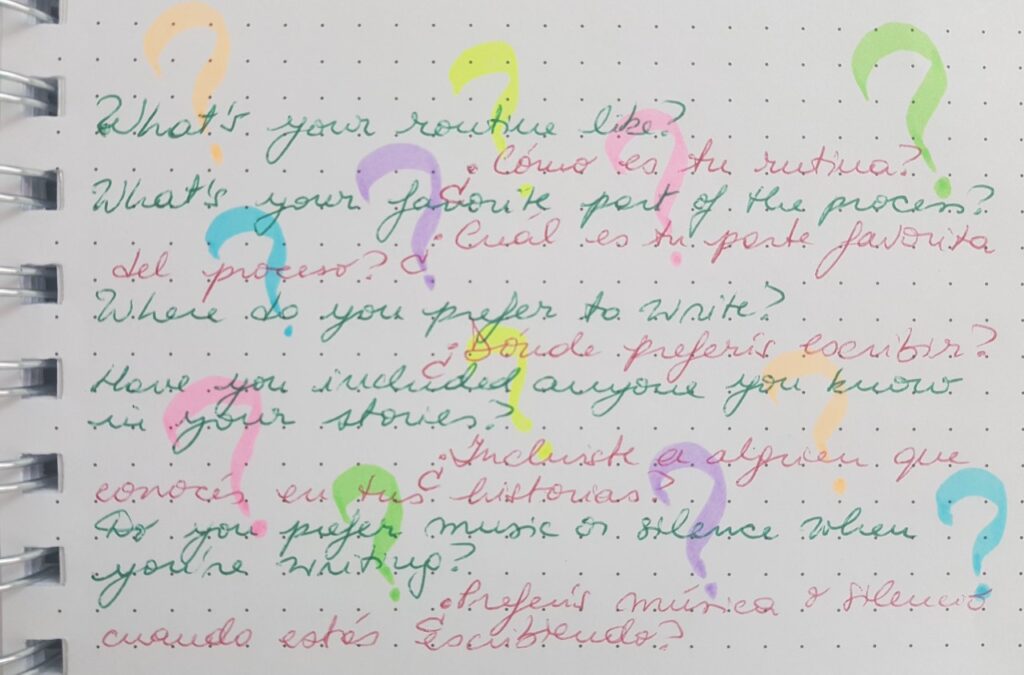 What's your routine like?
¿Cómo es tu rutina?
What's your favorite part of the process?
¿Cuál es tu parte favorita
del proceso?
Where do you prefer to write?
¿Dónde preferís escribir?
Have you included anyone you know
in your stories?
¿Incluiste a alguien que
conocés en tus historias?
Do you prefer music or silence when
you're writing?
¿Preferís música o silencio
cuando estás escribiendo?